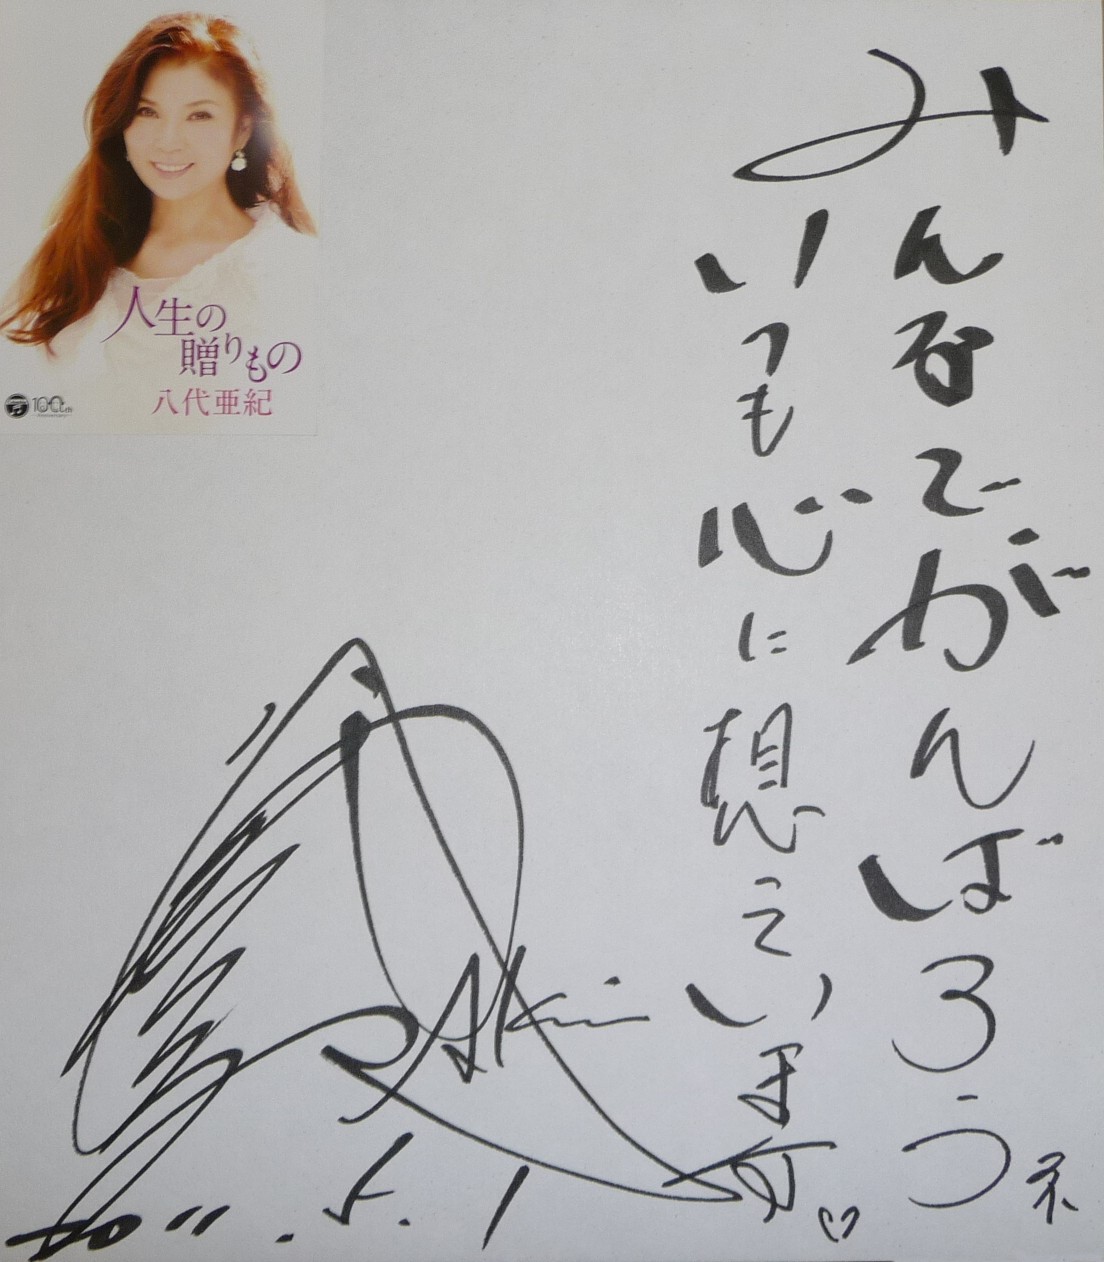 人生の
贈りもの
八代亜紀
100th
Anniversary
みんなでがんばろうネ
いつも心に想っています。♡
Aki
2011.5.1